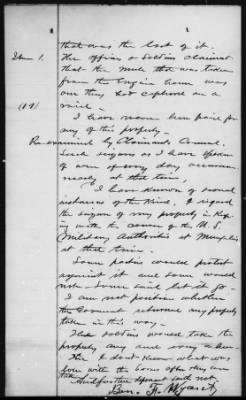 that was the last of it.
Item 1. The officers & soldiers claimed
that the mule that was taken
from the Engine house was
one they had captured on a
raid.
I have never been paid for
any of this property.
Re-examined by Claimants Counsel.
Such seizures as I have spoken
of were of every day occurrence
nearly at that time
I have known of several
instances of the kind. I regard
the seizure of my property in Keep-
ing with the course of the U.S.
Military Authorities at Memphis
at that time.
Some parties would protest
against it and some would
not. Some said let it go.
I am not positive whether
the Government returned any property
taken in this way.
The soldiers would take the
property any and every where.
I don't know what was
done with the horse after they
And further deponent saith not
Ben.